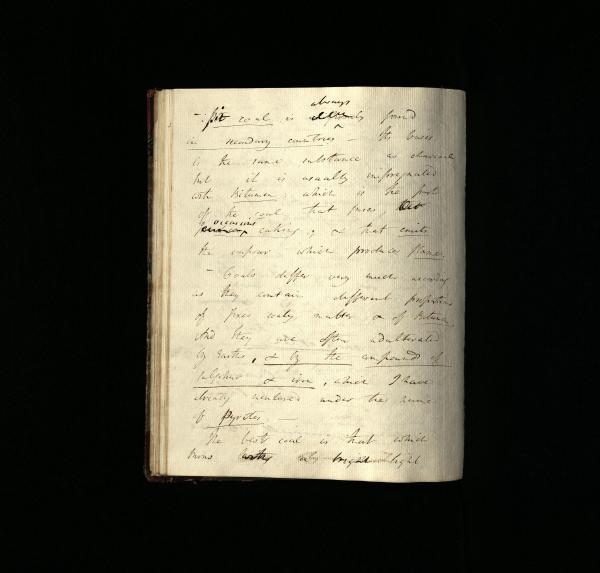 always
- : pit coal is found
in secondary countries - Its basis
is the same substance as charcoal
but it is usually impregnated
with Bitumen, which is the part
of the coal that fuses,
occasions caking, & that emits
the vapour which produces flame.
- Coals differ very much according
as they contain different proportions
of fixed coaly matter & of Bitumen,
And they are often adulterated
by Earths, & by the compounds of
sulphur & iron, which I have
already mentioned under the name
of Pyrites. -
The best coal is that which
burns bright light